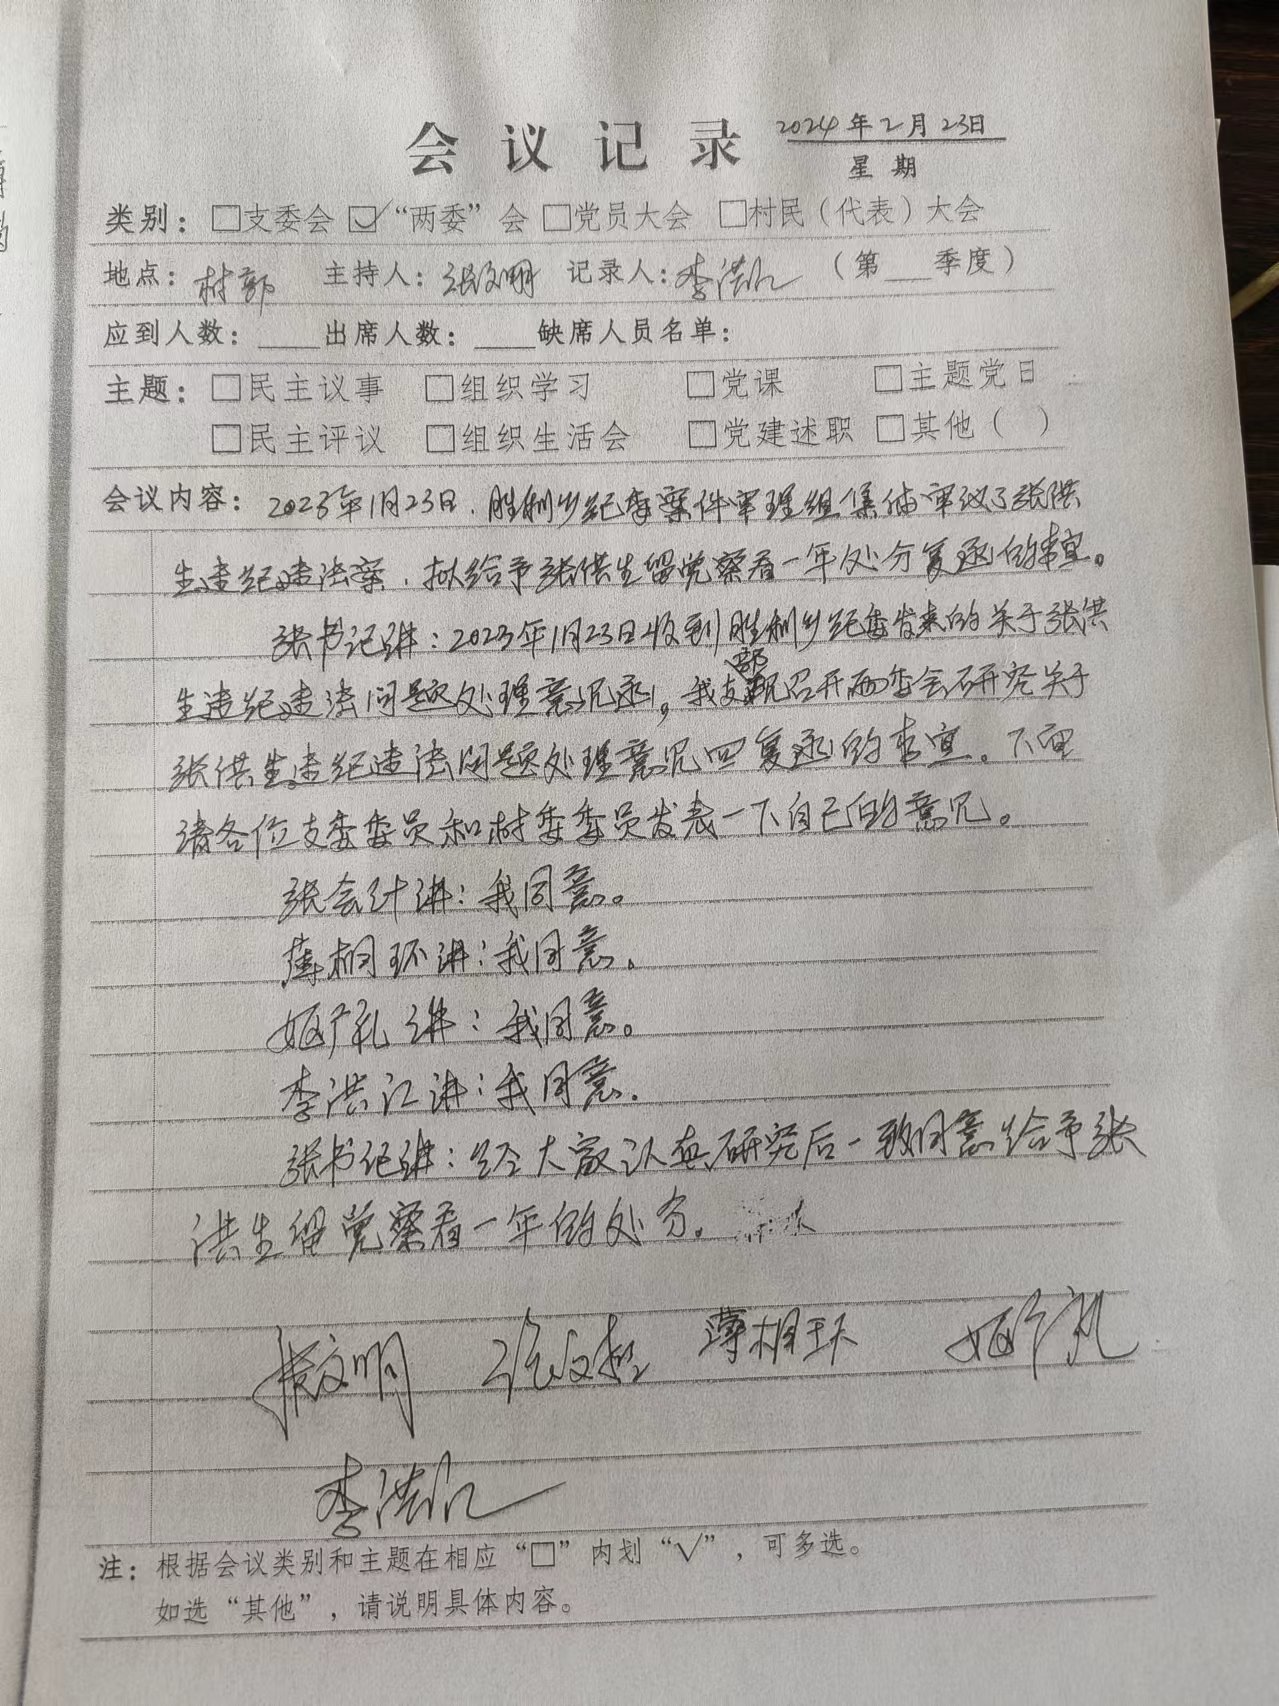 会议记录 2024年2月23日
星期
类别：□支委会 ☑“两委”会 □党员大会 □村民（代表）大会
地点：村部 主持人：张文明 记录人：李洪江 （第___季度）
应到人数：____出席人数：____缺席人员名单：
主题：□民主议事 □组织学习 □党课 □主题党日
□民主评议 □组织生活会 □党建述职 □其他（ ）
会议内容：2023年11月23日，胜利乡纪委案件审理组集体审议了张洪
生违纪违法案，拟给予张洪生留党察看一年处分复函的事宜。
张书记讲：2023年11月23日收到胜利乡纪委发来的关于张洪
生违纪违法问题处理意见函，我支部现召开两委会研究关于
张洪生违纪违法问题处理意见回复函的事宜。下面
请各位支委委员和村委委员发表一下自己的意见。
张会计讲：我同意。
薄相环讲：我同意。
姬广礼讲：我同意。
李洪江讲：我同意.
张书记讲：经大家认真研究后一致同意给予张
洪生留党察看一年的处分。
张文明 薄相环 姬广礼
李洪江
注：根据会议类别和主题在相应“□”内划“√”，可多选。
如选“其他”，请说明具体内容。